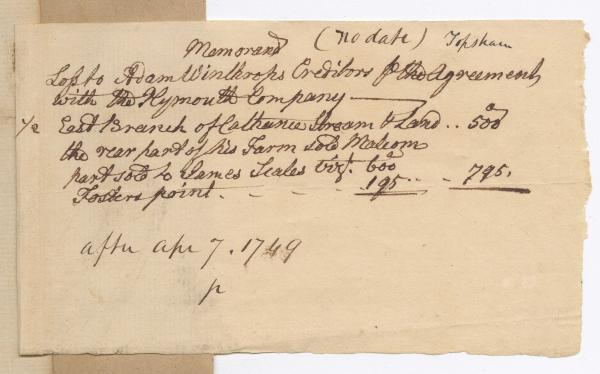 Memorand (no date) Topsham
Loss to Adam Winthrops Creditors p the Agreement
with the Plymouth Company
1/2 East Branch of Cathance Stream & Land .. 500
the rear part of his Farm sold Malcom
part sold to James Scales 600
Fosters point. - - - 195.. - 795.
after apr 7. 1749
p